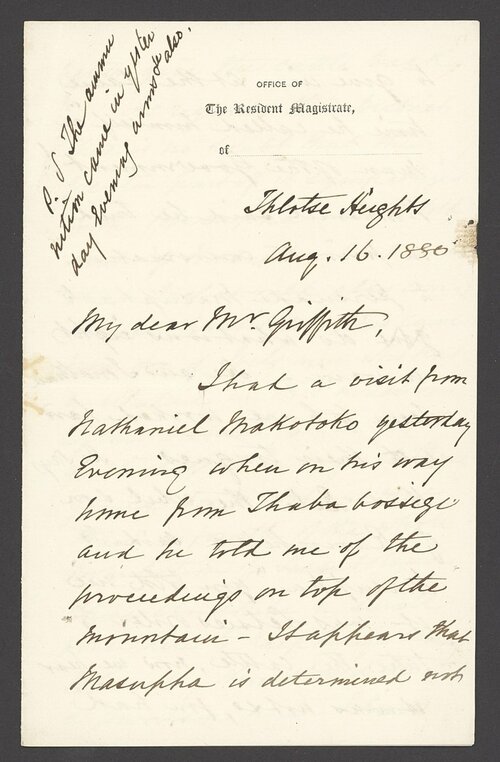 P.S. The ammu
nition came in yester
day Evening arrived also.
OFFICE OF
The Resident Magistrate,
of
Thlotse Heights
Aug. 16. 1880
My dear Mr. Griffith,
I had a visit from
Nathaniel Makotoko yesterday
Evening when on his way
home from Thaba bossigo
and he told me of the
proceedings on top of the
mountain - It appears that
Masupha is determined not